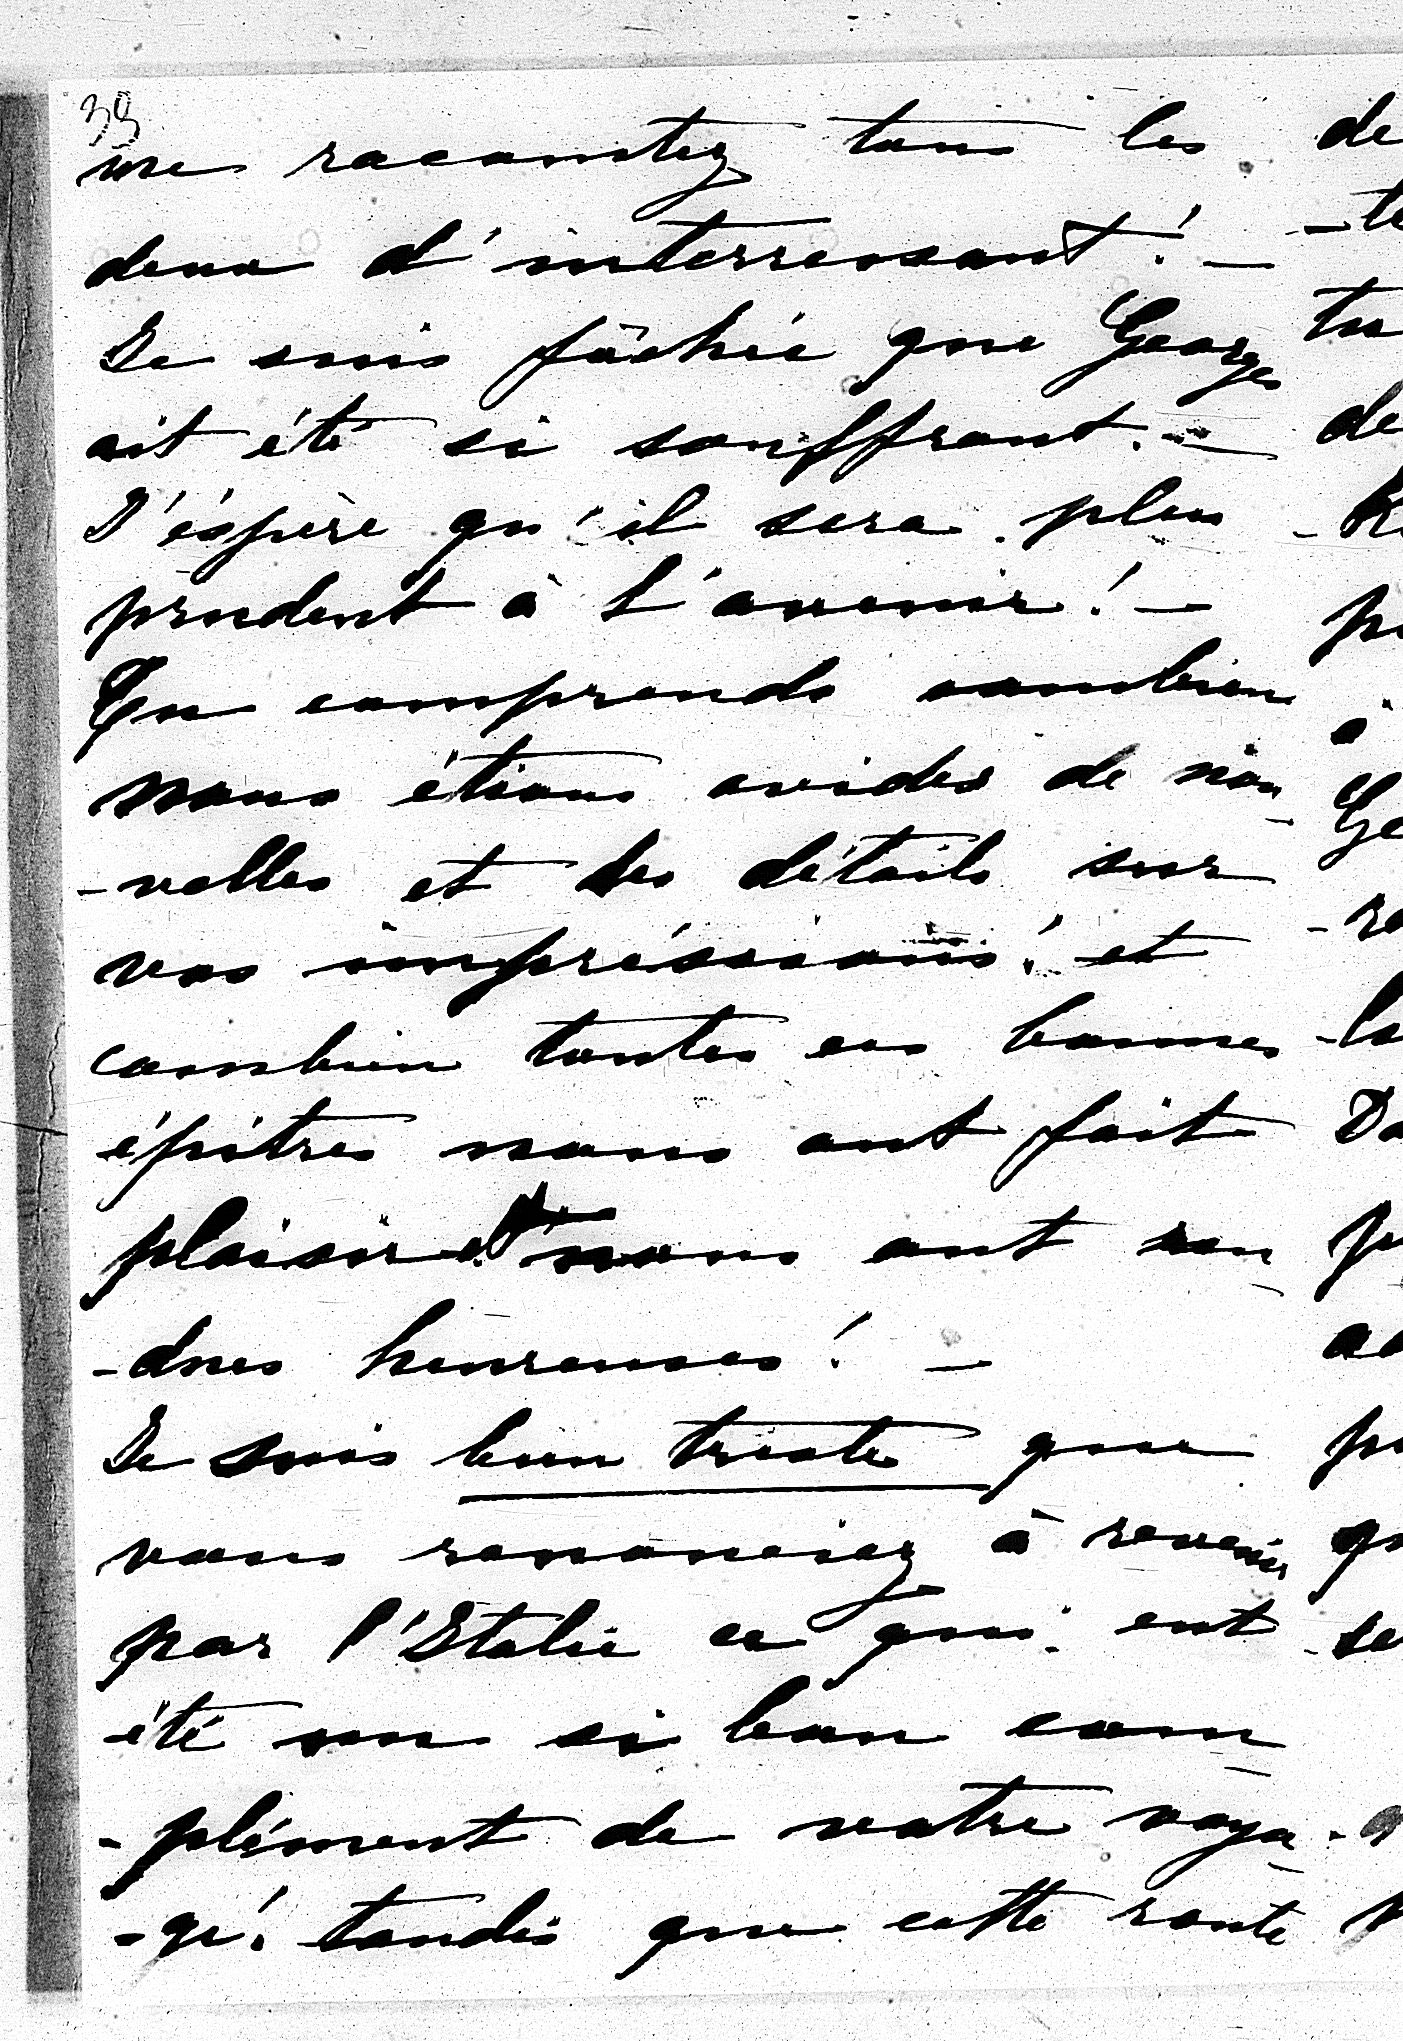 38
me racontez tous les
deux d'interressant! —
Je suis fâchée que Georges
ait été si souffrant. —
J'éspère qu'il sera plus
prudent à l'avenir! —
Tu comprends combien
nous étions avides de nou-
-velles et des détails sur
vos impréssions! et
combien toutes ces bonnes
épitres nous ont fait
plaisir et nous ont ren-
-dues heureuses! —
Je suis bien triste que
vous renonciez à revenir
par l'Italie ce qui eut
été un si bon com-
-plément de votre voya-
-ge! tandis que cette route